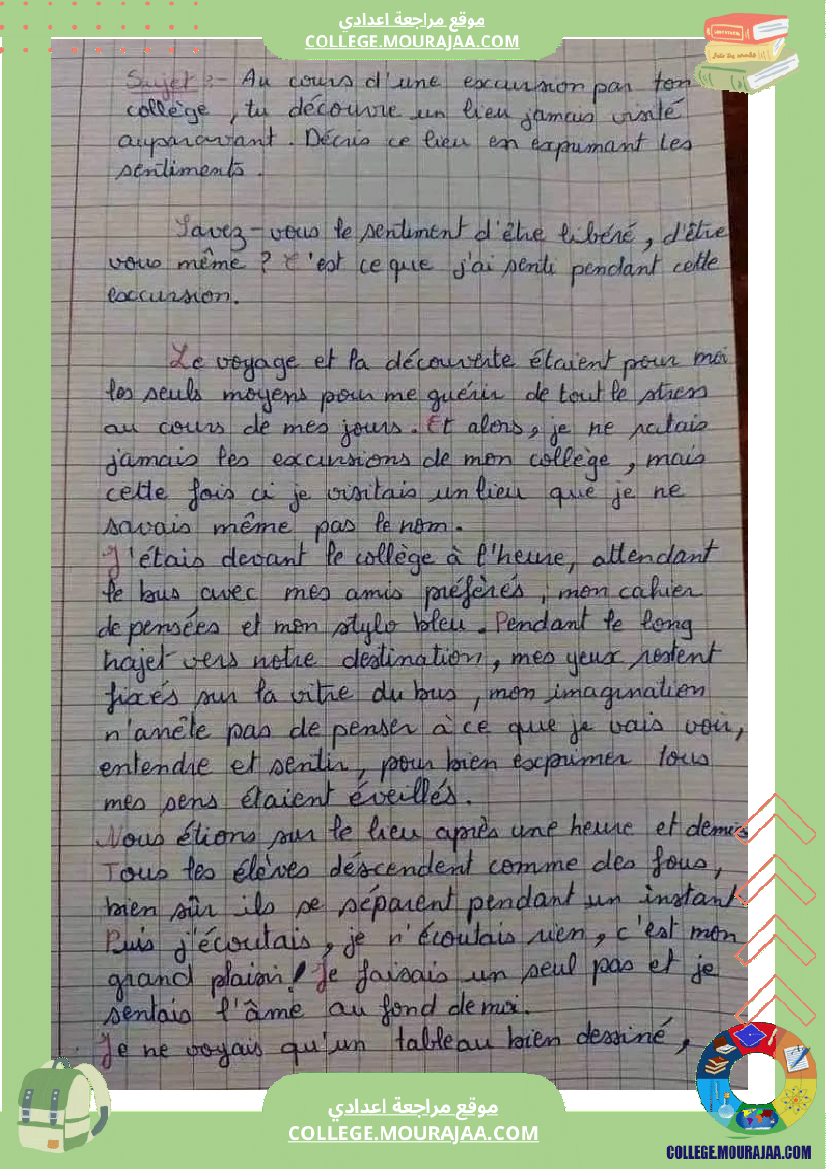 موقع مراجعة اعدادي
COLLEGE.MOURAJAA.COM
Sujet :- Au cours d'une excursion par ton
collège, tu découvre un lieu jamais visité
auparavant. Décris ce lieu en exprimant les
sentiments.
Savez-vous le sentiment d'être libéré, d'être
vous même ? C'est ce que j'ai senti pendant cette
excursion.
Le voyage et la découverte étaient pour moi
les seuls moyens pour me guérir de tout le stress
au cours de mes jours. Et alors, je ne ratais
jamais les excursions de mon collège, mais
cette fois ci je visitais un lieu que je ne
savais même pas le nom.
J'étais devant le collège à l'heure, attendant
le bus avec mes amis préférés, mon cahier
de pensées et mon stylo bleu. Pendant le long
trajet vers notre destination, mes yeux restent
fixés sur la vitre du bus, mon imagination
n'arrête pas de penser à ce que je vais voir,
entendre et sentir, pour bien exprimer tous
mes sens étaient éveillés.
Nous étions sur le lieu après une heure et demie
Tous les élèves déscendent comme des fous,
bien sûr ils se séparent pendant un instant.
Puis j'écoutais, je n'écoutais rien, c'est mon
grand plaisir! Je faisais un seul pas et je
sentais l'âme au fond de moi.
Je ne voyais qu'un tableau bien dessiné,
موقع مراجعة اعدادي
COLLEGE.MOURAJAA.COM
COLLEGE.MOURAJAA.COM